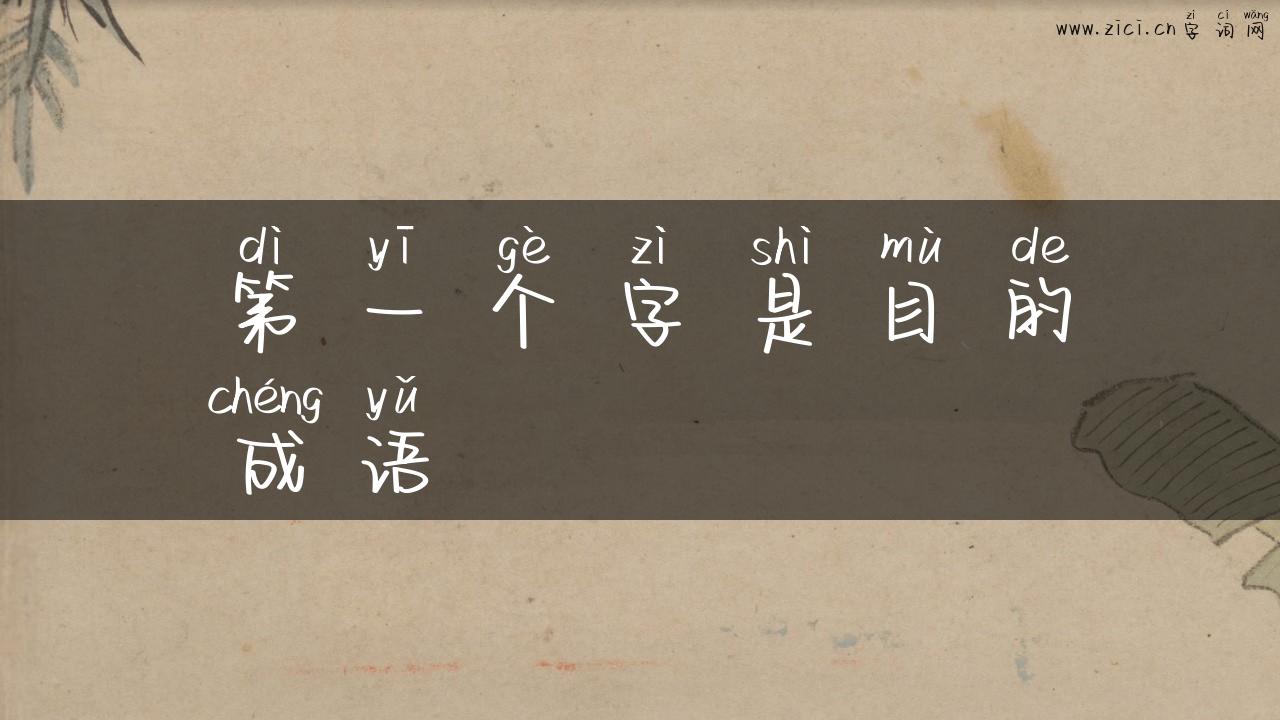 zì cí wǎng
www.zici.cn 字词网
dì yī gè zì shì mù de
第一个字是目的
chéng yǔ
成语